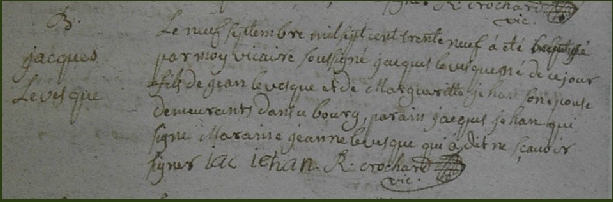 R. crochard
vic.
B.
jacques
Levesque
Le neuf septembre mil sept cent trente neuf á été baptisé
par moy vicaire soussigné jacques levesque né de ce jour
fils de jean levesque et de Margueritte jehan son epouse
demeurants dans ce bourg, parain jacques jehan qui
signe Maraine jeanne levesque qui a dit ne sçavoir
signer iac iehan. R. crochard
vic.